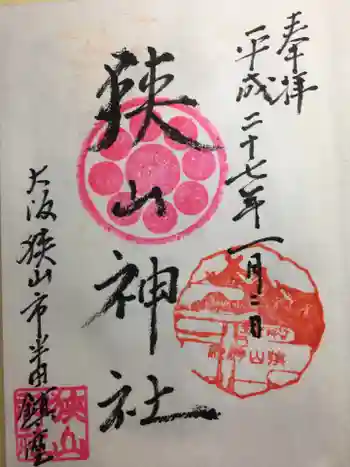 奉拝
平成二十七年一月二日
狭山神社
大阪狭山市半田鎮座
狭山